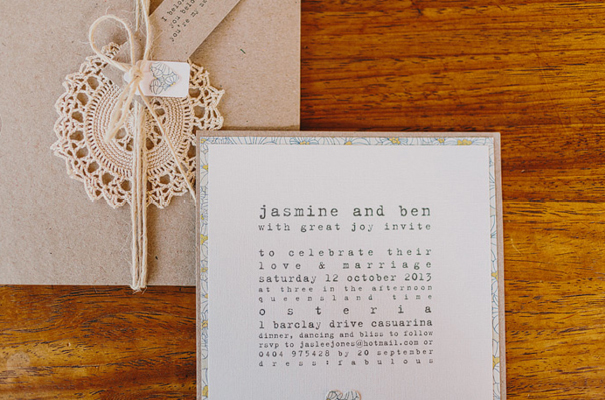 I hold
you belo
you're my sa
jasmine and ben
with great joy invite
to celebrate their
love & marriage
saturday 12 october 2013
at three in the afternoon
queensland time
osteria
1 barclay drive casuarina
dinner, dancing and bliss to follow
rsvp to jasleejones@hotmail.com or
0404 975428 by 20 september
dress:fabulous